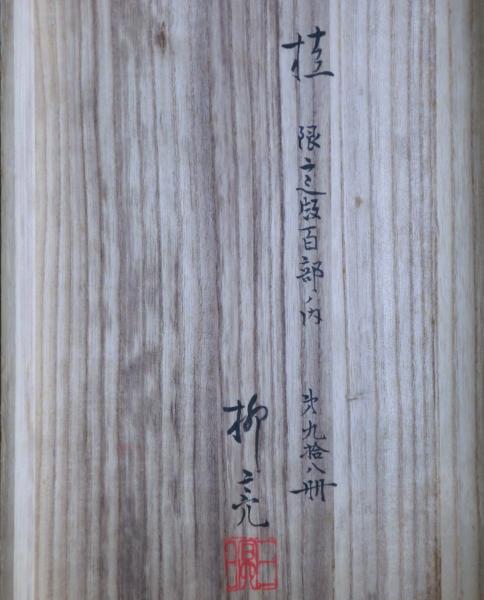 桂 限定版百部ノ内 第九拾八冊
柳亮